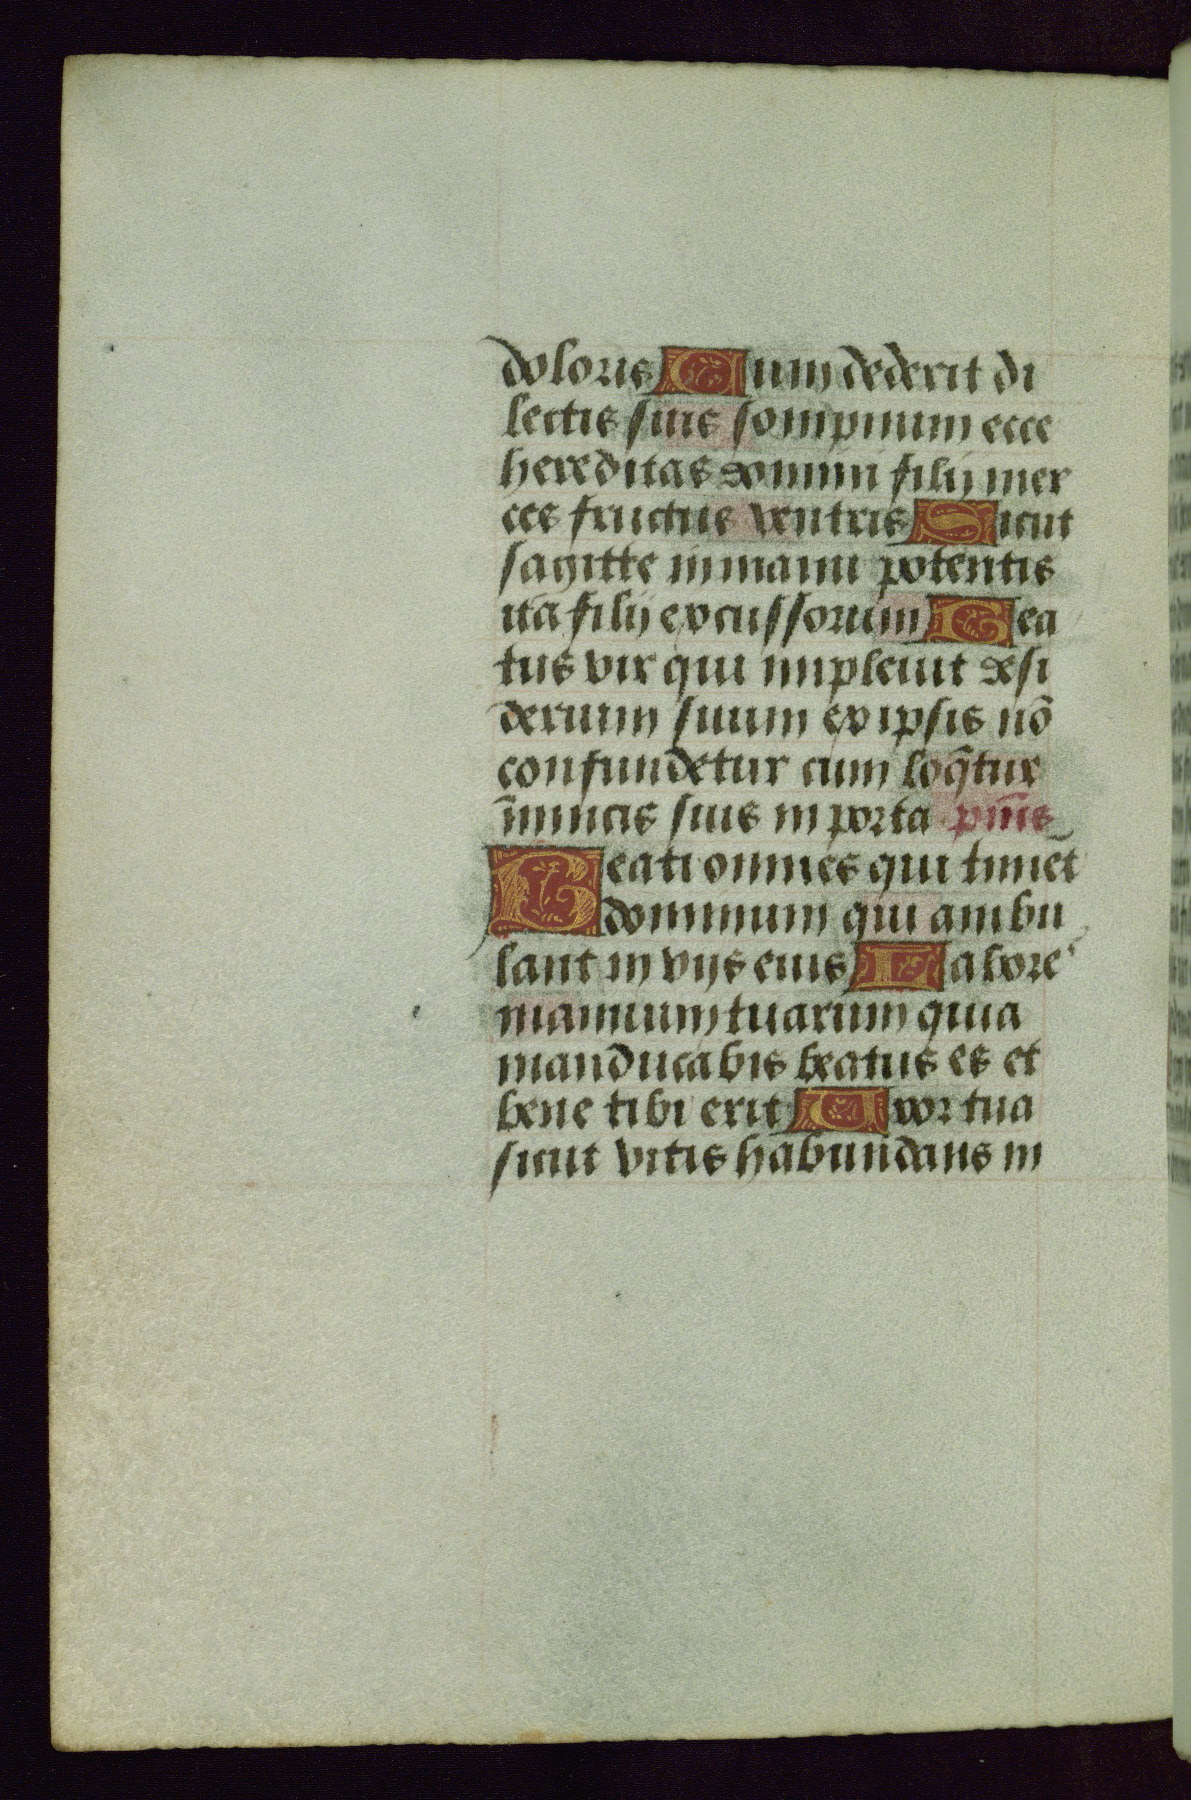 doloris Cum dederit di
lectis suis sompnum ecce
hereditas domini filij mer
ces fructus ventris Sicut
sagitte in manu potentis
ita filij excussorum Bea
tus vir qui impleuit desi
derium suum ex ipsis nō
confundetur cum loq̄tur
īimicis suis in porta pm̄s
Beati omnes qui timēt
dominum qui ambu
lant in vijs eius Labore
manuum tuarum quia
manducabis beatus es et
bene tibi erit Uxor tua
sicut vitis habundans in